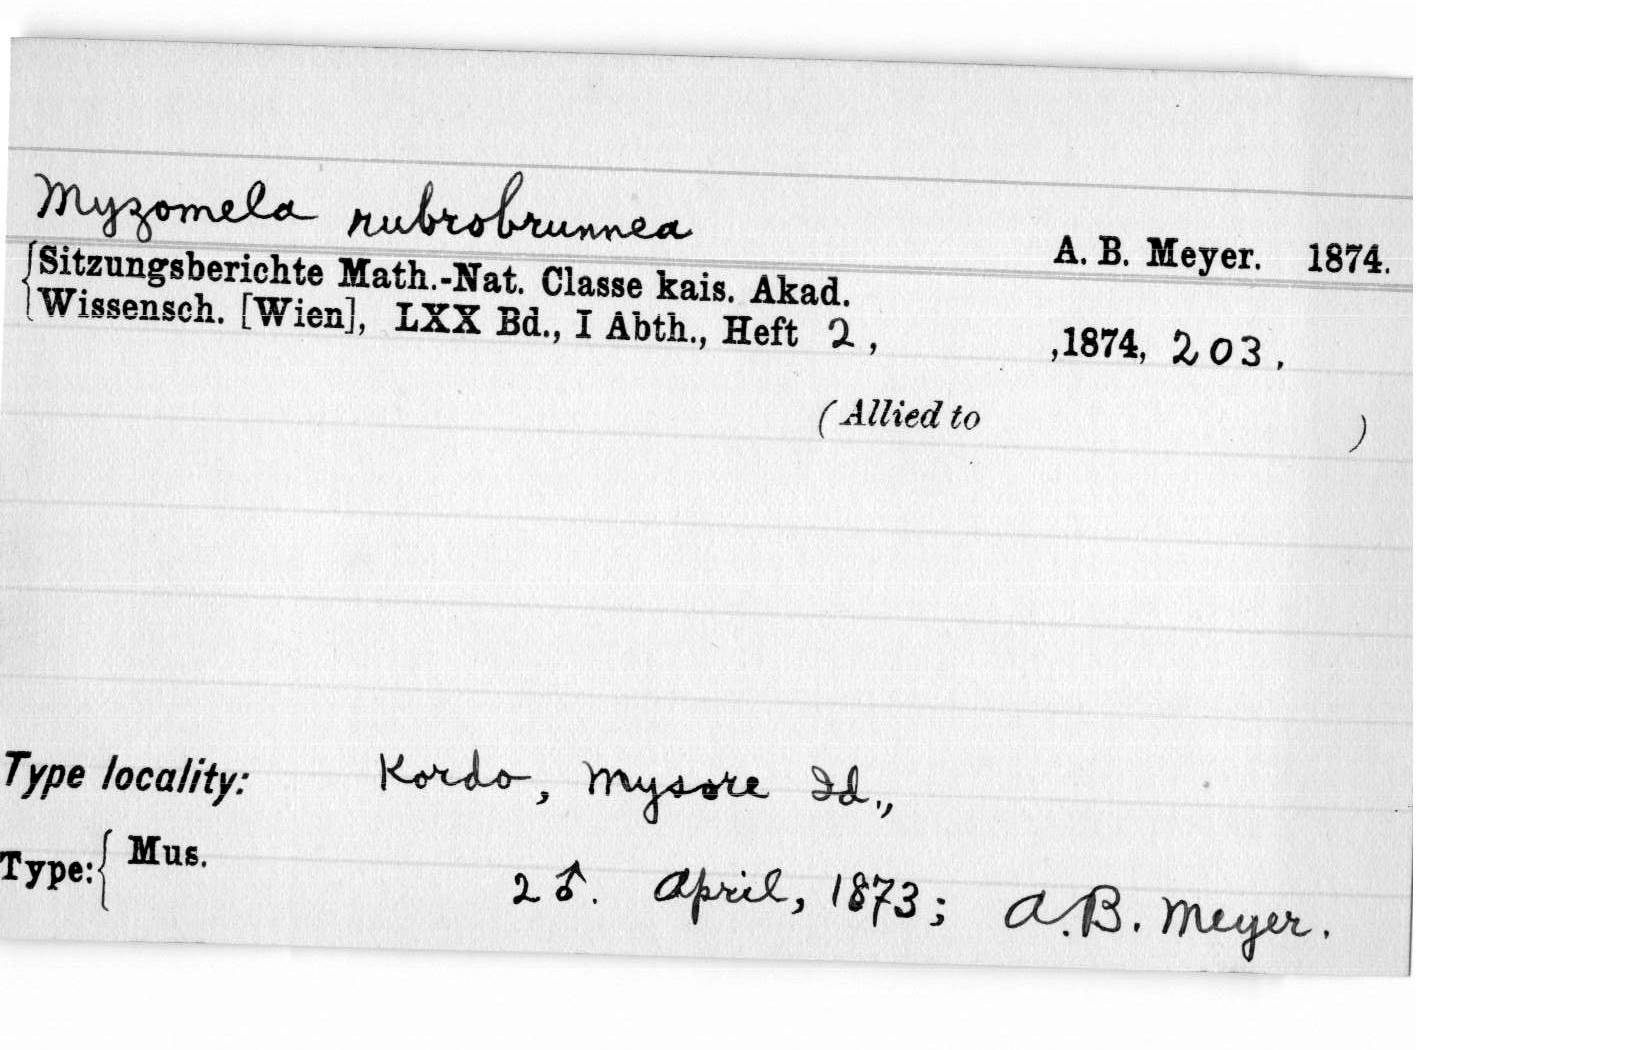 Myzomela rubrobrunnea A. B. Meyer. 1874.
Sitzungsberichte Math.-Nat. Classe kais. Akad.
Wissensch. [Wien], LXX Bd., I Abth., Heft 2, ,1874, 203.
(Allied to )
Type locality: Kordo, Mysore Id.,
Type: Mus.
2 ♂. April, 1873; A.B. Meyer.